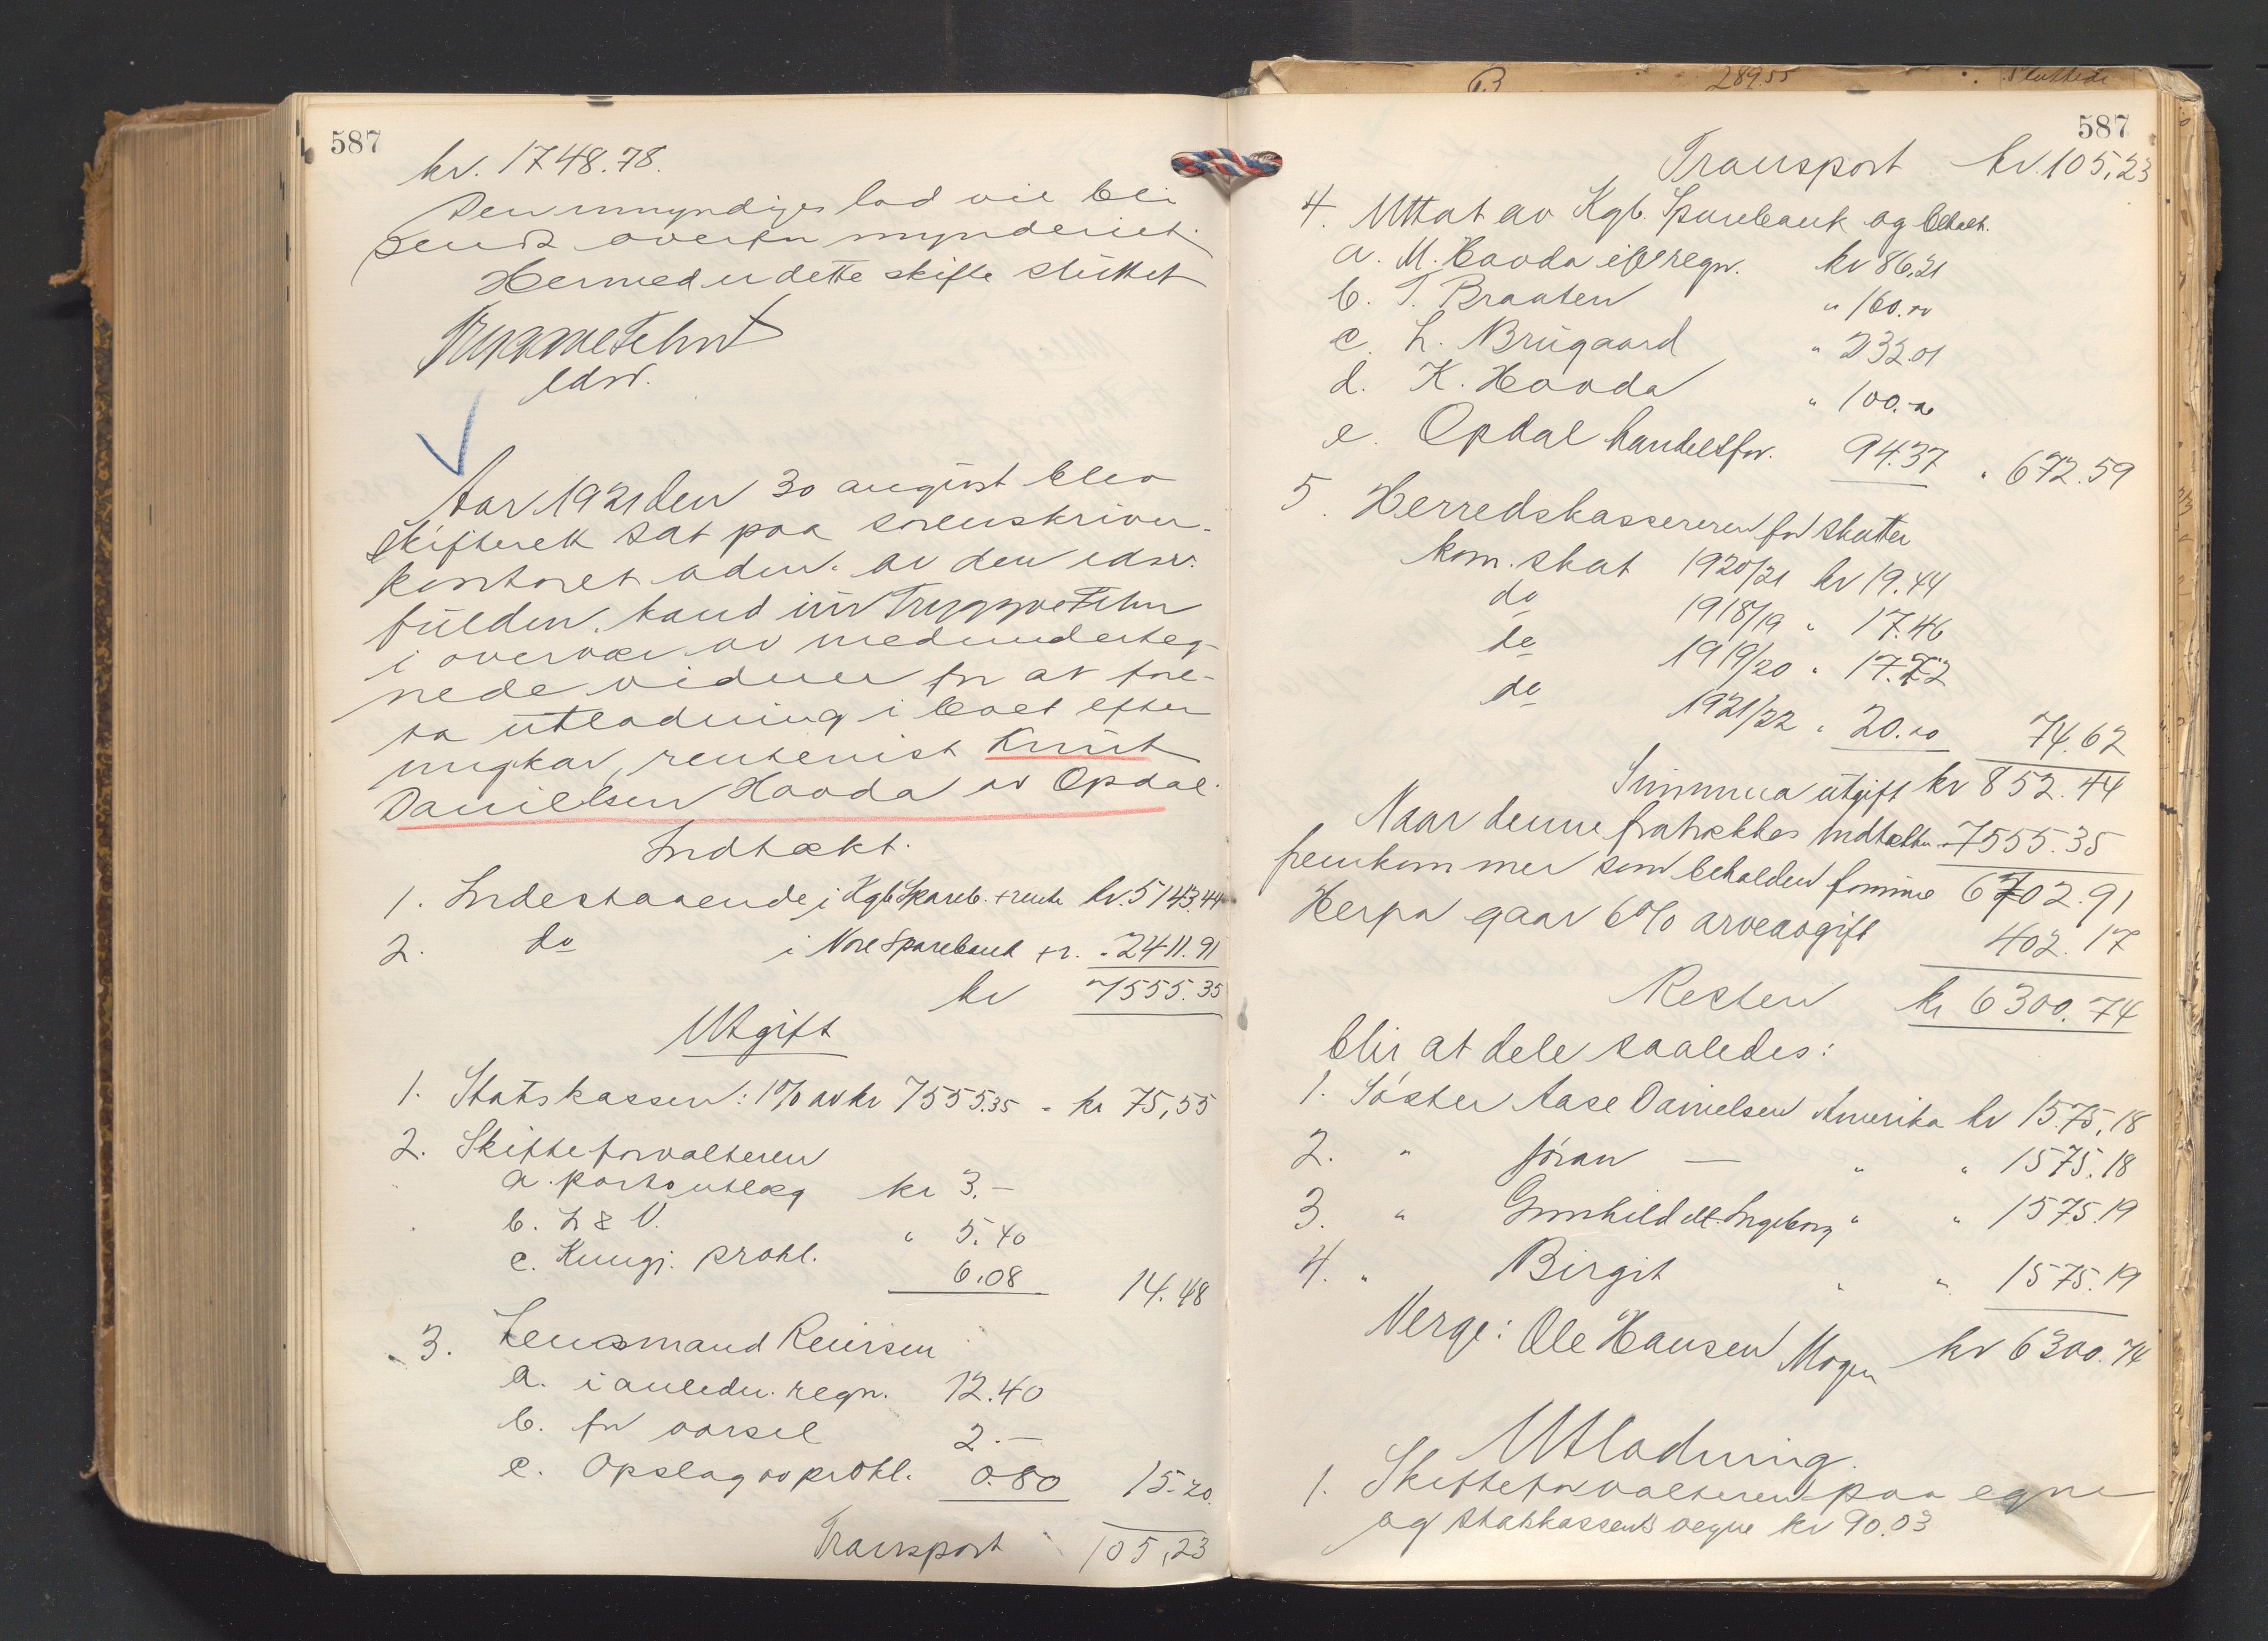 587
kr. 1748.78.
Den umyndiges lod vil bli
sendt overformynderiet.
Hermed er dette skifte sluttet
Tryggve Fehn
edsv.
Aar 1921 den 30 august blev
skifterett sat paa sorenskriver-
kontoret adm. av den edsv.
fuldm. kand jur Tryggve Fehn
i overvær av medunderteg-
nede vidner for at fore-
ta utlodning i boet efter
ungkar, rentenist Knut
Danielsen Hovda av Opdal.
Indtækt.
1. Indestaaende i Kgb Spareb. + rente kr. 5143.44
2. do i Nore Sparebank + r. " 2411.91
kr 7555.35
Utgift
1. Statskassen: 1% av kr 7555.35 - kr 75,55
2. Skifteforvalteren
a. porto utlæg kr 3.-
b. L & V. " 5.40
c. Kungj. prokl. 6.08 14.48
3. Lensmand Reiersen
a. i anledn. regn. 12.40
b. for varsel 2.-
c. Opslag av prokl. 0.80 15.20.
Transport 105,23
289.55 Sluttede
587
Transport kr. 105,23
4. Uttat av Kgb. Sparebank og betalt.
a. M. Hovda ifl regn. kr 86,21
b. T. Braaten " 160.00
c. L. Brugaard " 232.01
d. K. Hovda " 100.00
e. Opdal handelsfor. 94.37 " 672.59
5. Herredskassereren for skatter
kom. skat 1920/21 kr 19.44
do 1918/19 " 17.46
do 1919/20 " 17.72
do 1921/22 " 20.00 74.62
Summa utgift kr 852.44
Naar denne fratrækkes indtækten " 7555.35
fremkommer som beholden formue 6702.91
Herpa gaar 6% arveavgift 402.17
Resten kr 6300.74
blir at dele saaledes:
1. Søster Aase Danielsen Amerika kr 1575,18
2. " Jøran — " " 1575.18
3. " Gunhild ell. Ingeborg " " 1575.19
4. " Birgit " " 1575.19
Verge: Ole Hansen Mogen kr 6300.74
Utlodning.
1. Skifteforvalteren paa egne
og statskassens vegne kr 90.03